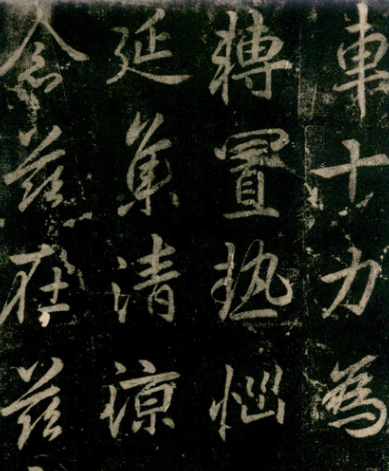 車十力為
轉置熱惱
延集清涼
念茲在茲